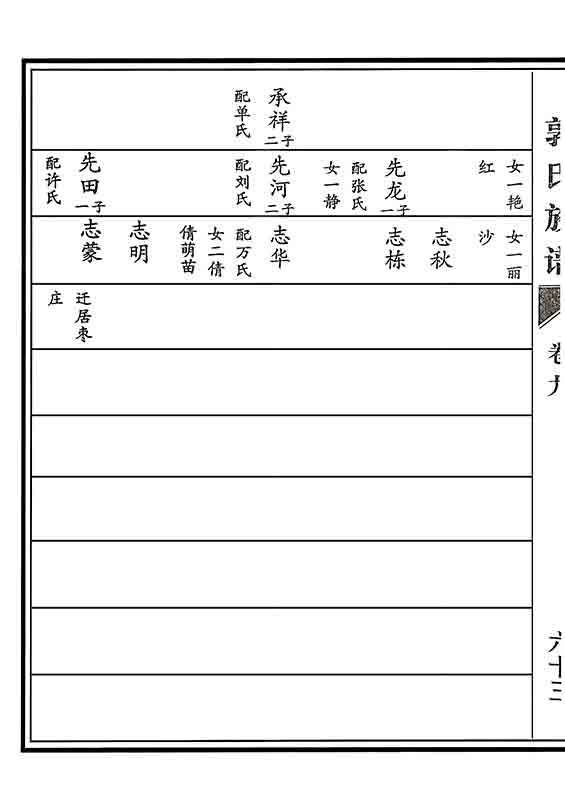 郭氏族谱
卷九
六十三
承祥
二子
配单氏
女一艳
红
先龙
一子
配张氏
女一静
先河
二子
配刘氏
先田
一子
配许氏
女一丽
沙
志秋
志栋
志华
配万氏
女二倩
倩萌苗
志明
志蒙
迁居枣
庄